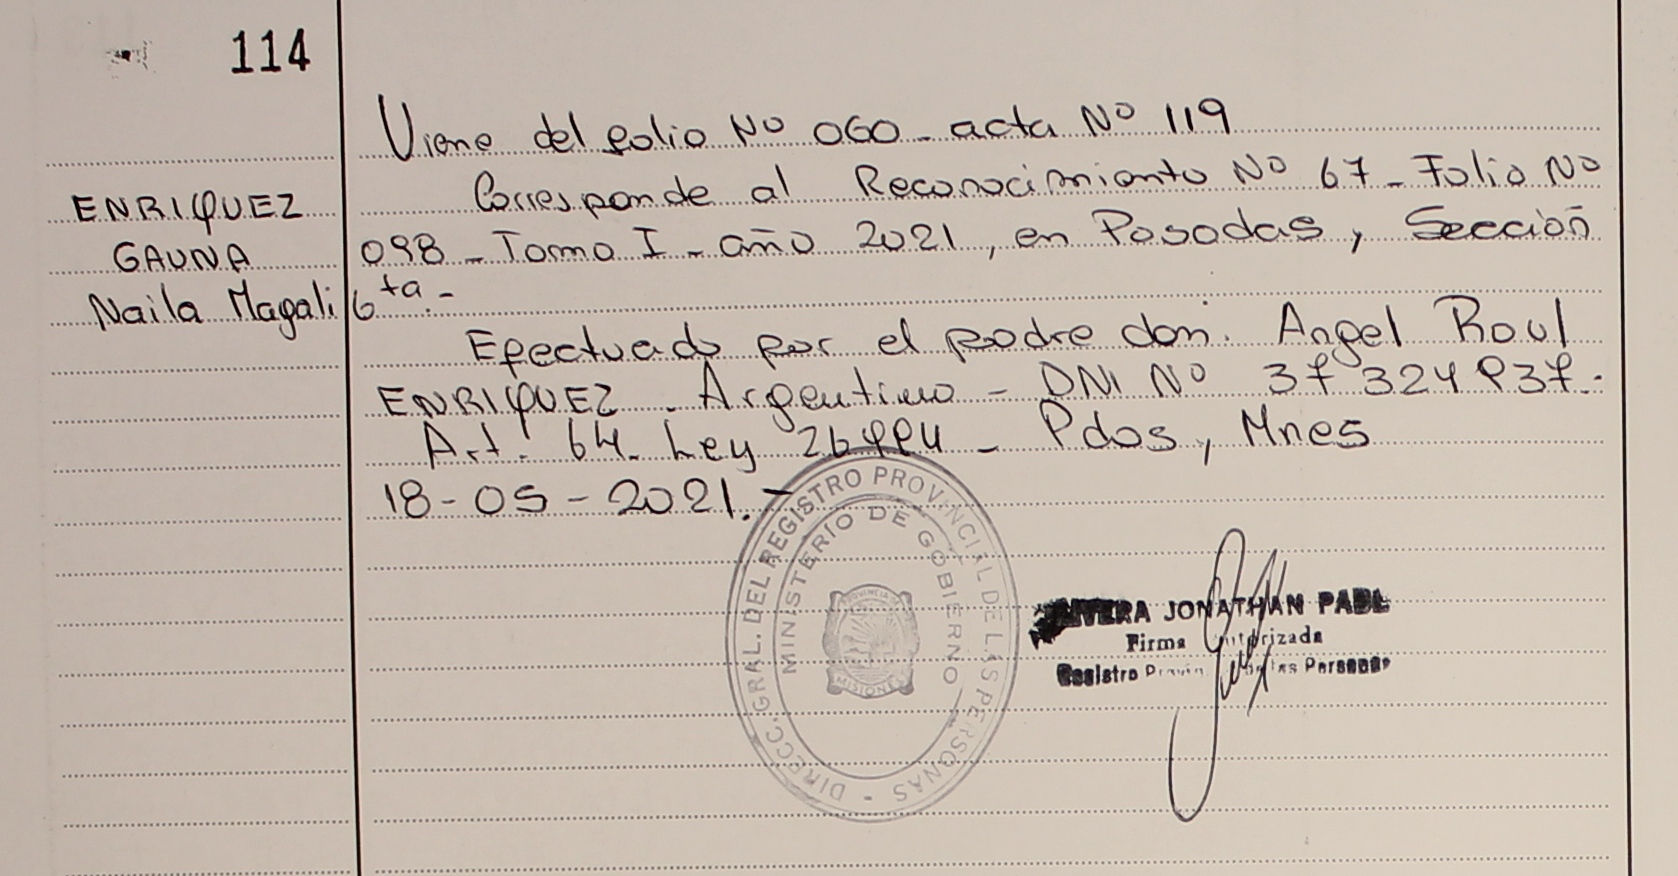 114
Viene del folio Nº 060 - acta Nº 119
Corresponde al Reconocimiento Nº 67 - Folio Nº
098 - Tomo I - año 2021, en Posadas, Sección
6ta -
Efectuado por el padre don: Angel Raul
ENRIQUEZ - Argentino - DNI Nº 37 324 937.
Art. 64. Ley 26994 - Pdas, Mnes
18-05-2021.-
ENRIQUEZ
GAUNA
Naila Magali
DIRECC. GRAL. DEL REGISTRO PROVINCIAL DE LAS PERSONAS -
MINISTERIO DE GOBIERNO
PROVINCIA
MISIONES
JONATHAN
Firma Autorizada
Registro